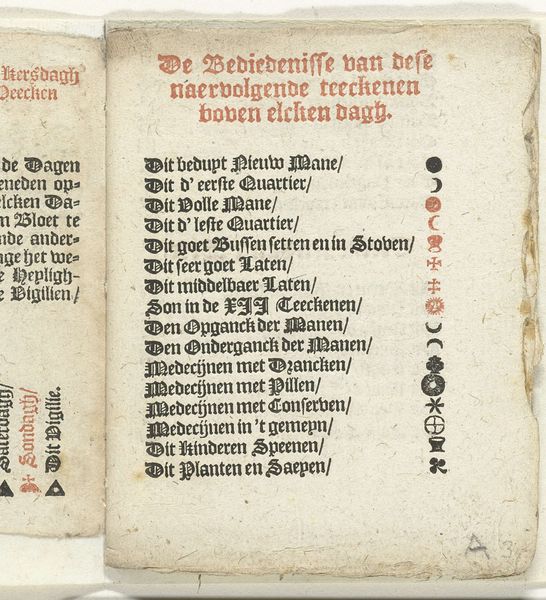 Kersdagh
Veecken
de Dagen
eneden op-
elcken Da-
n Bloet te
nde ander-
nge het we-
e Heyligh-
e Vigilien/
Saterdagh/
Sondagh/
Dit Vigilie.
De Bediedenisse van dese
naervolgende teeckenen
boven elcken dagh.
Dit beduyt Nieuw Mane/
Dit d' eerste Quartier/
Dit Volle Mane/
Dit d' leste Quartier/
Dit goet Bussen setten en in Stoven/
Dit seer goet Laten/
Dit middelbaer Laten/
Son in de XII Teeckenen/
Den Opganck der Manen/
Den Onderganck der Manen/
Medecijnen met Drancken/
Medecijnen met Pillen/
Medecijnen met Conserven/
Medecijnen in 't gemeyn/
Dit Kinderen Speenen/
Dit Planten en Saeyen/